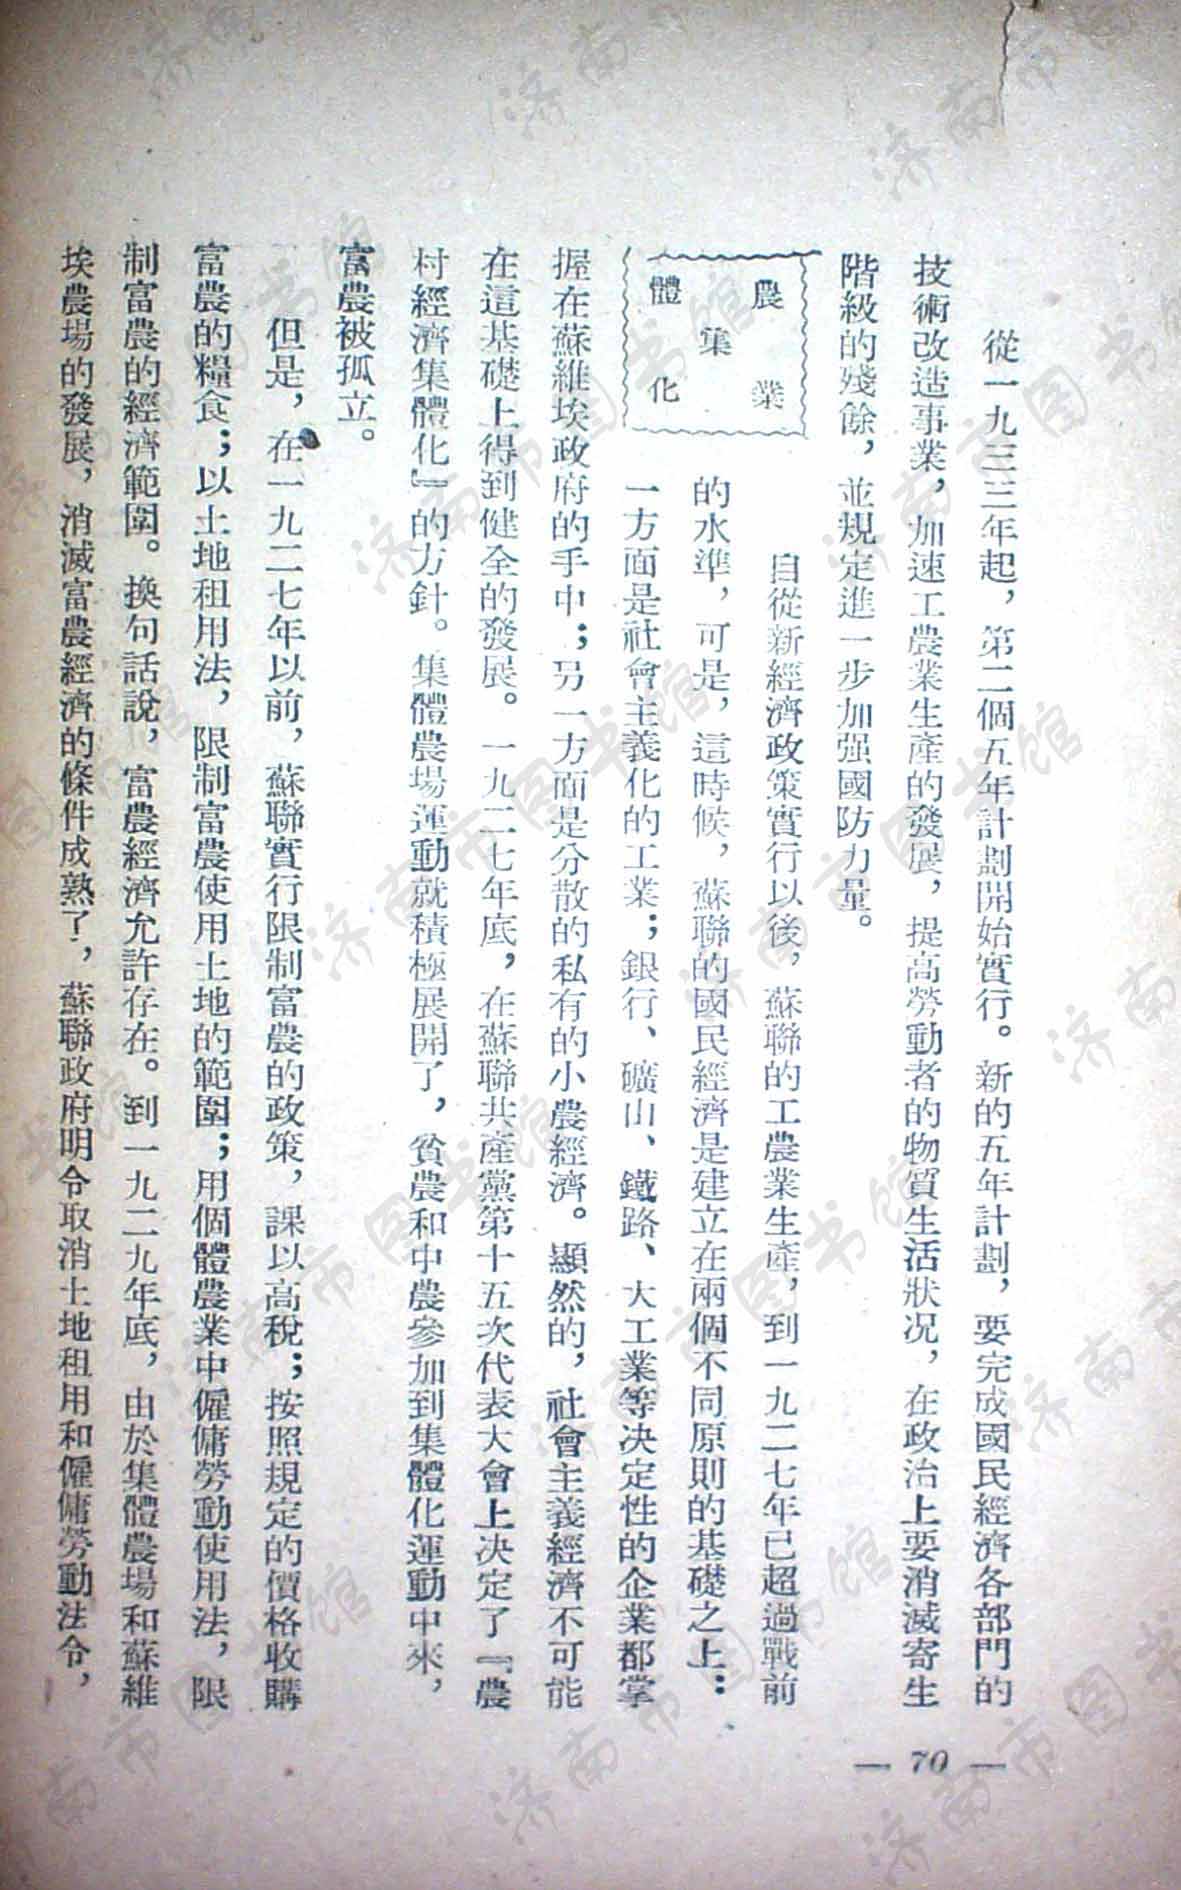 從一九三三年起，第二個五年計劃開始實行。新的五年計劃，要完成國民經濟各部門的
技術改造事業，加速工農業生產的發展，提高勞動者的物質生活狀况，在政治上要消滅寄生
階級的殘餘，並規定進一步加强國防力量。
農業
集
體化
自從新經濟政策實行以後，蘇聯的工農業生產，到一九二七年已超過戰前
的水準，可是，這時候，蘇聯的國民經濟是建立在兩個不同原則的基礎之上：
一方面是社會主義化的工業；銀行、礦山、鐵路、大工業等决定性的企業都掌
握在蘇維埃政府的手中；另一方面是分散的私有的小農經濟。顯然的，社會主義經濟不可能
在這基礎上得到健全的發展。一九二七年底，在蘇聯共產黨第十五次代表大會上决定了『農
村經濟集體化』的方針。集體農場運動就積極展開了，貧農和中農參加到集體化運動中來，
富農被孤立。
但是，在一九二七年以前，蘇聯實行限制富農的政策，課以高稅；按照規定的價格收購
富農的糧食；以土地租用法，限制富農使用土地的範圍；用個體農業中僱傭勞動使用法，限
制富農的經濟範圍。換句話說，富農經濟允許存在。到一九二九年底，由於集體農場和蘇維
埃農場的發展，消滅富農經濟的條件成熟了，蘇聯政府明令取消土地租用和僱傭勞動法令，
— 70 —
济南市图书馆